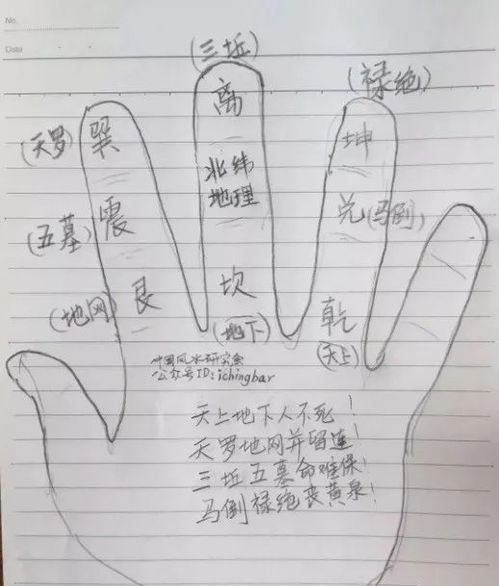 No.
Date
(三坵)
(禄绝)
离
(天罗) 巽
坤
北纬
地理
兑 (马倒)
(五墓) 震
艮
坎
乾
(地网)
(地下)
(天上)
中国风水研究会
公众号ID:ichingbar
天上地下人不死!
天罗地网并留连!
三坵五墓命难保!
马倒禄绝丧黄泉!